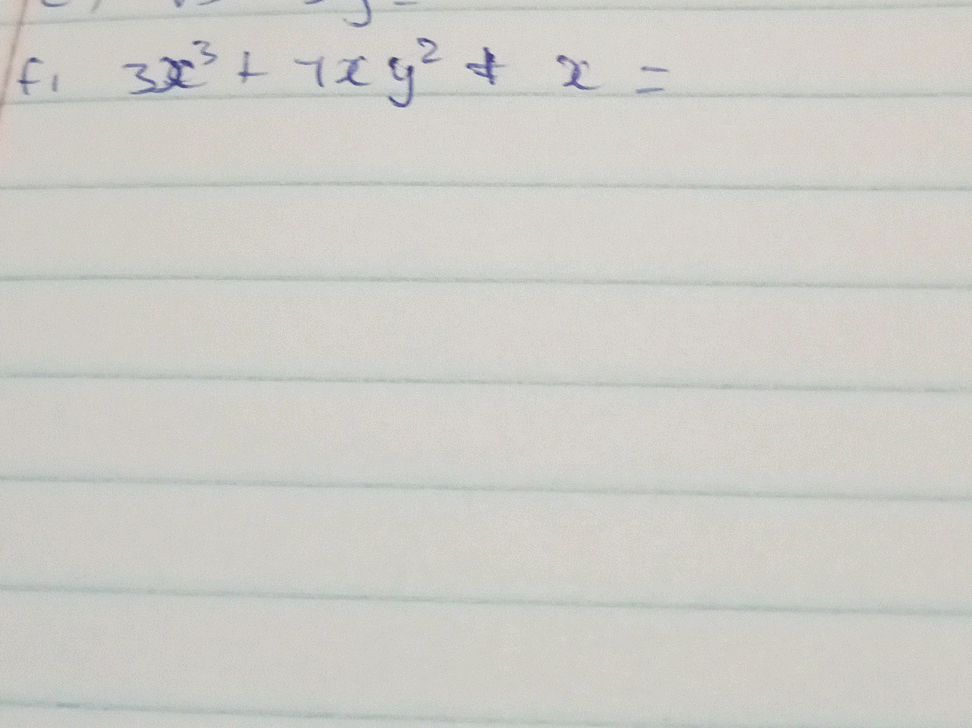 f. 3x³ + 7xy² + x =